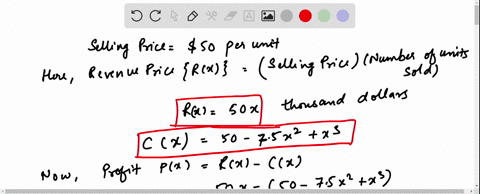 Selling Price = $50 per unit
Here, Revenue Price {R(x)} = (Selling Price)(Number of units sold)
R(x) = 50x thousand dollars
C(x) = 50 - 7.5x² + x³
Now, Profit P(x) = R(x) - C(x)
50x - (50 - 7.5x² + x³)